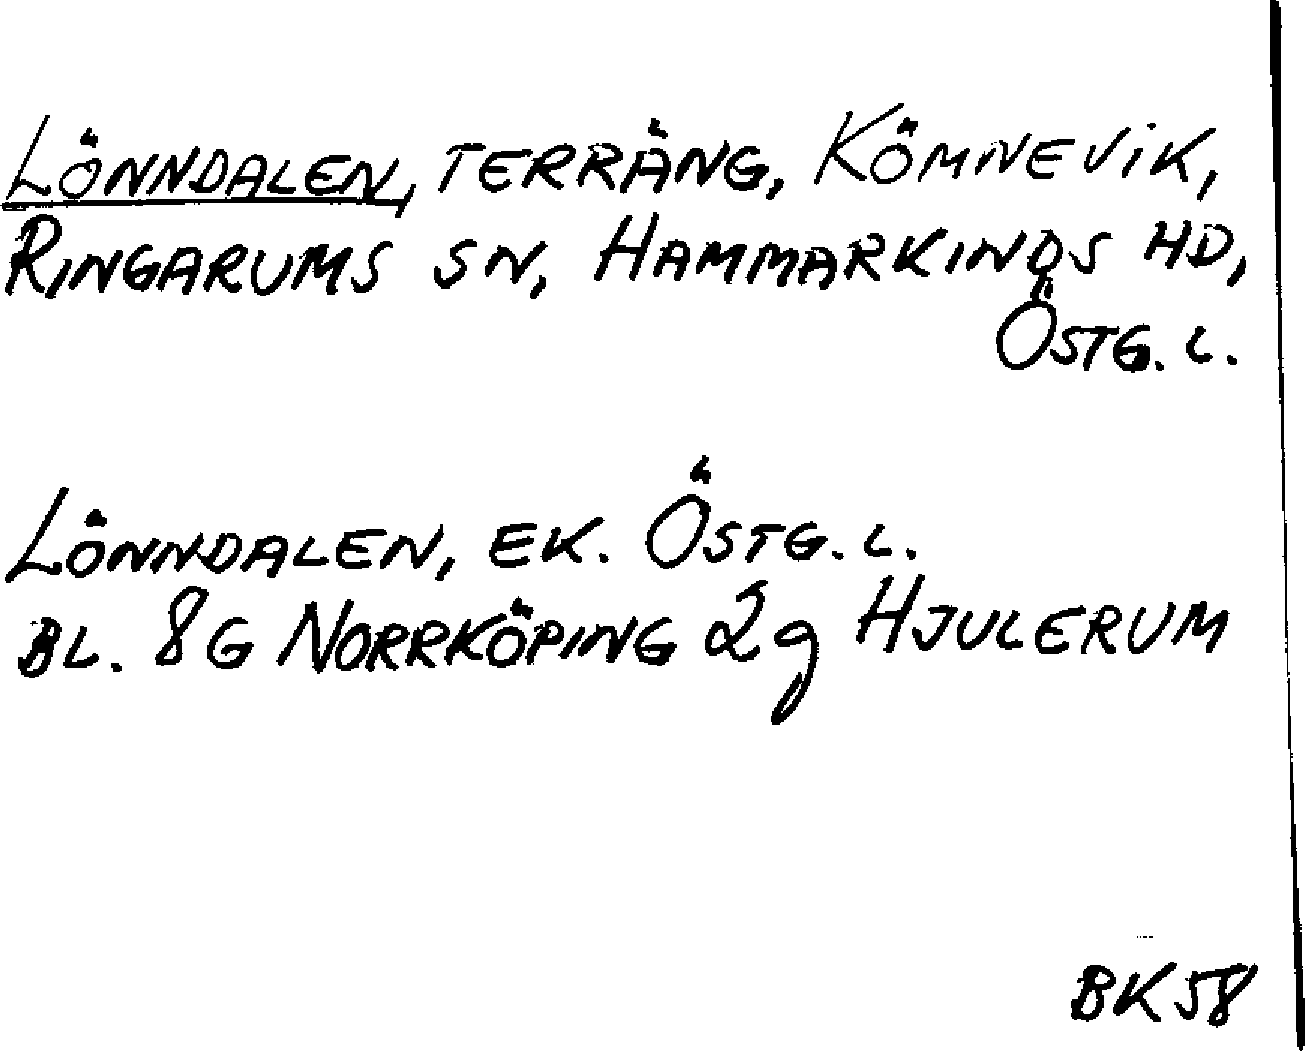 LÖNNDALEN, TERRÄNG, KÖMNEVIK,
RINGARUMS SN, HAMMARKINDS HD,
ÖSTG. L.
LÖNNDALEN, EK. ÖSTG. L.
BL. 8G NORRKÖPING 2g HJULERUM
BK 58